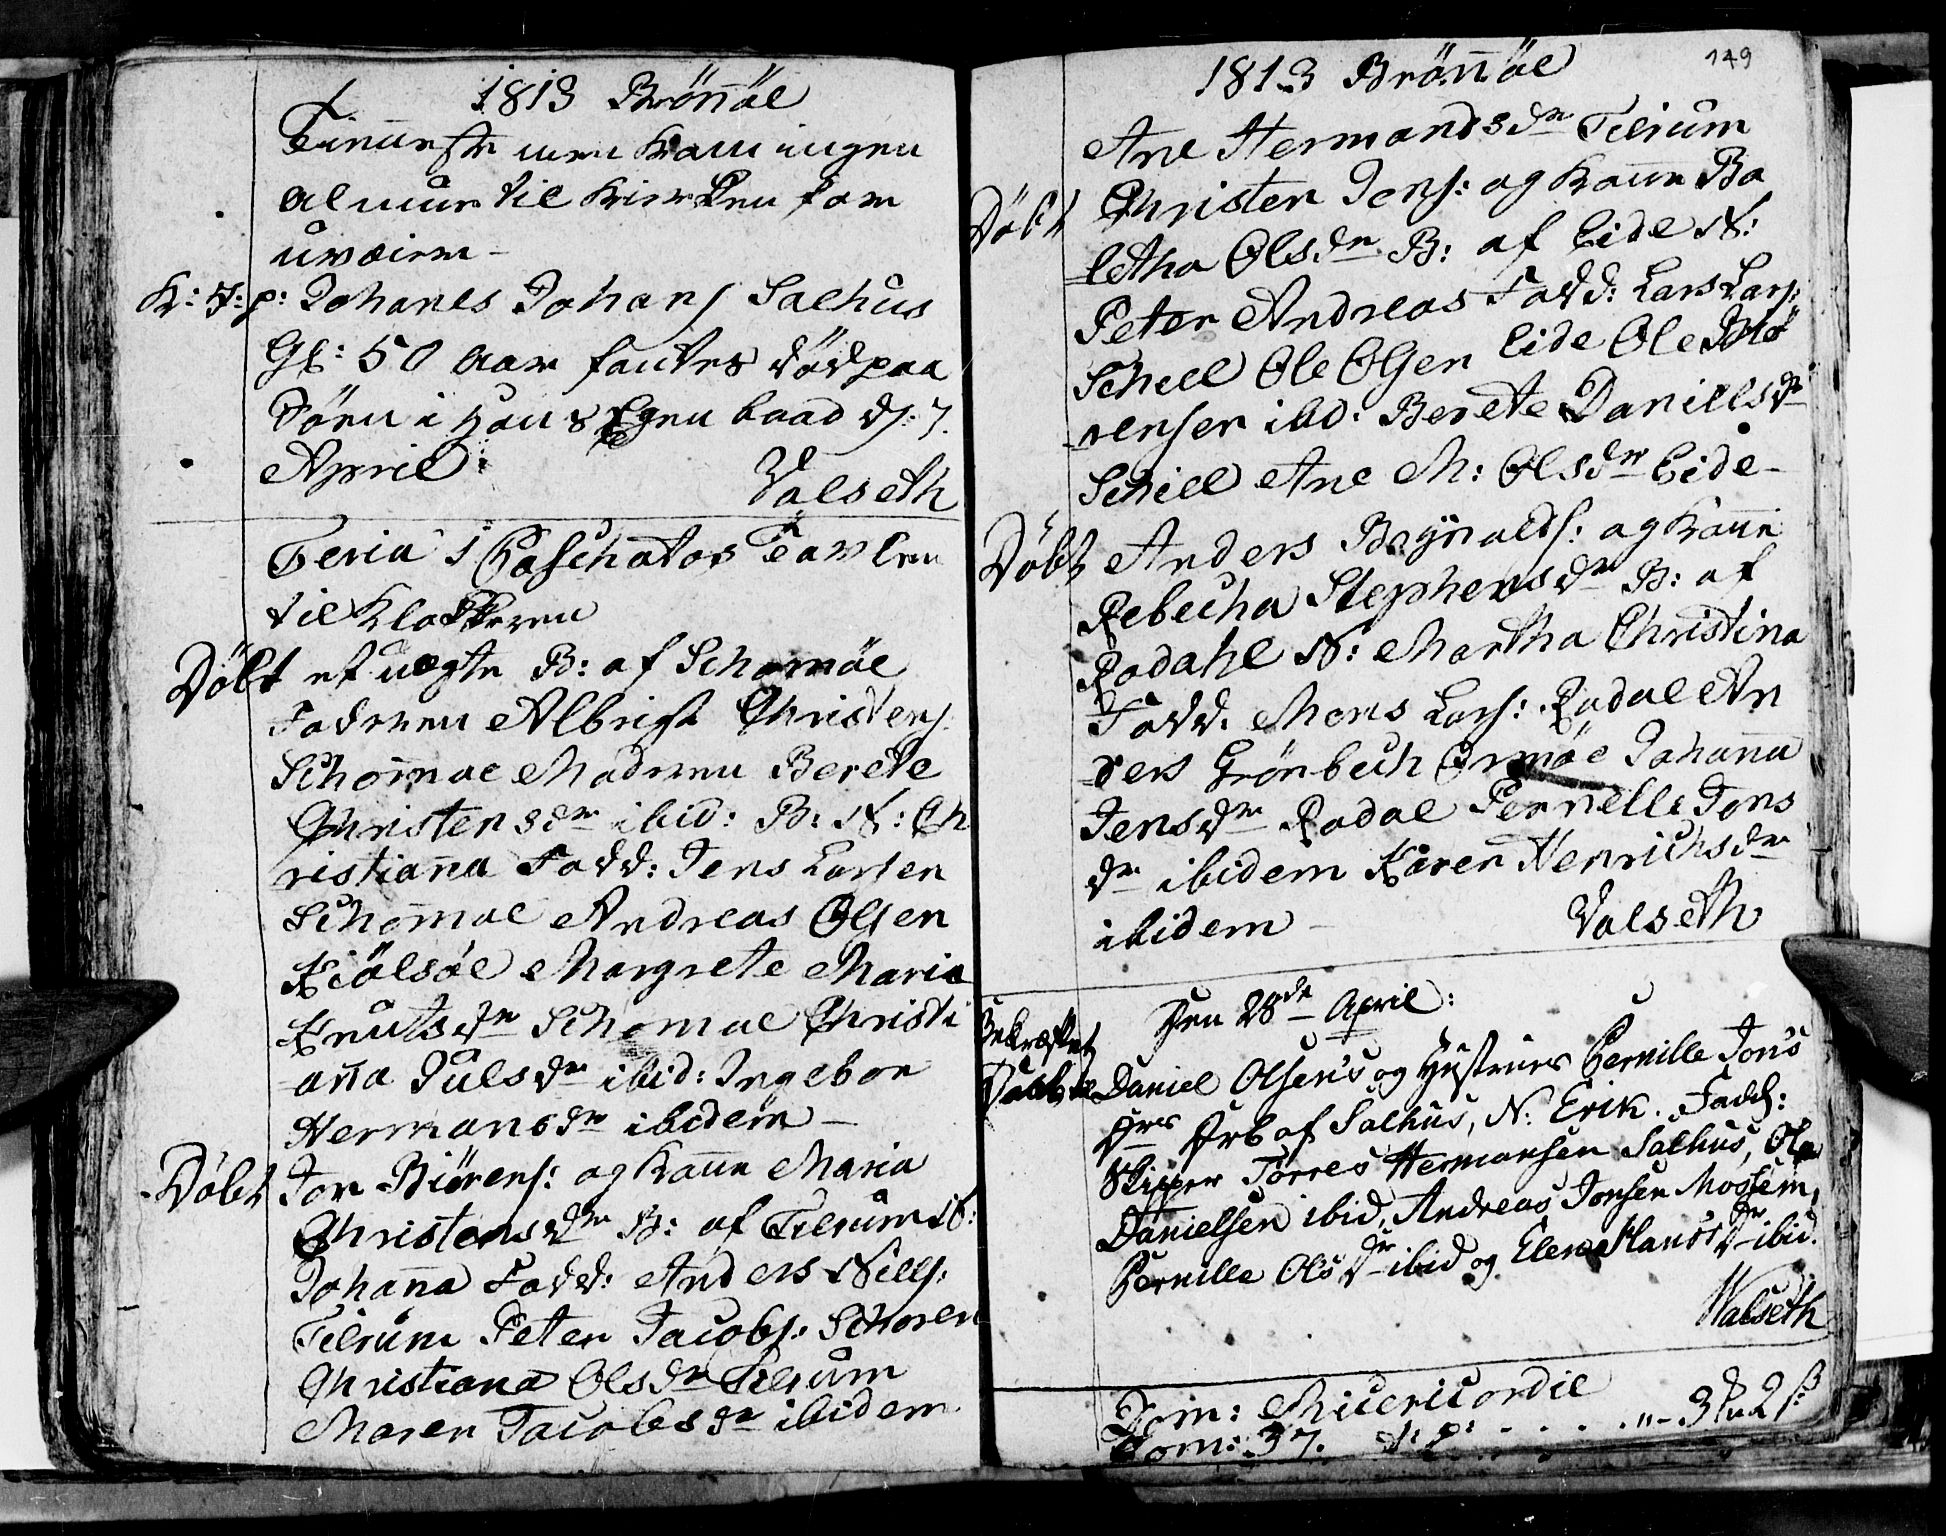 1813 Brönöe
Tieneste men kom ingen
Almue til Kirken for
uveier -
K: F: p: Johanes Johans Salhus
Gl: 50 Aar fantes död paa
Söen i hans Egen baad d: 7.
April:
Valseth
Feria 1 Paschatos Tavlen
til Klokkeren
Döbt et uegte B: af Schomöe
Faderen Albrigt Christens:
Schomoe Moderen Berete
Christensdr ibid: B: N: Ch
ristiana Fadd: Jens Larsen
Schomoe Andreas Olsen
Kiölsöe Margrete Maria
Knutsdr Schomoe Christi
-ana Julsdr ibid: Ingebor
Hermansdr ibidem -
Döbt Jon Biörens: og Kone Maria
Christensdr B: af Tilrum N:
Johana Fadd: Anders Nills:
Tilrum Peter Jacobs: Schoren
Christiana Olsdr Tilrum
Maren Jacobsdr ibidem
149
1813 Brönöe
Ane Hermandsdr Tilrum
Döbt Christen Jens: og Kone Bo
-letha Olsdr B: af Eide N:
Peter Andreas Fadd: Lars Lars:
Schiel Ole Olsen Eide Ole
-rensen ibd: Berete Daniellsdr
Schiell Ane M: Olsdr Eide -
Döbt Anders Bøynalds: og Kone
Rebecha Stephensdr B: af
Rodahl N: Martha Christina
Fadd. Mons Lars: Rodal An
-ders Grönbech Ormöe Johanna
Jensdr Rodal Pernelle Jons
dr ibidem Karen Henrichsdr
ibidem -
Valseth
Den 28de April:
Bekræftet
Daaben Daniel Olsen's og Hustrues Pernille Jon's
Drs Drb af Salhus, N: Erik. Fadd:
Skipper Torres Hermansen Salhus, Ole
Danielsen ibid, Andreas Jonsen Mosheim,
Pernille Ols Dr ibid og Elen Hans's Dr ibid.
Walseth
Dom: Misericordie
Com: 37. T: P: . . . . . "- 3 2 s: